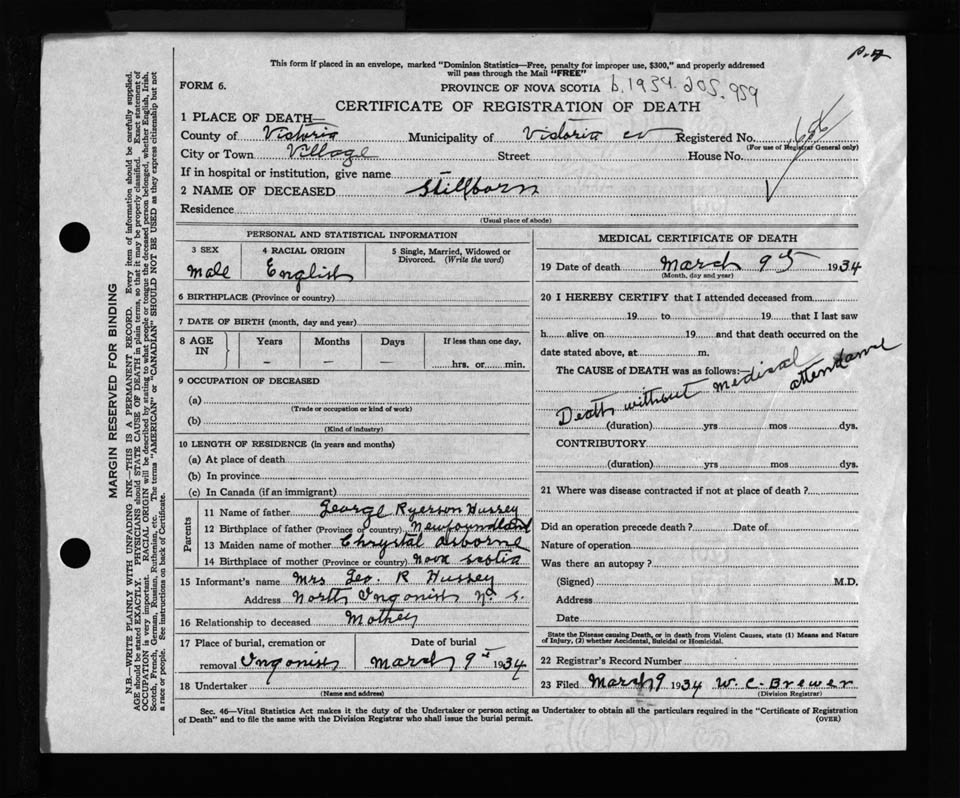 P-7
This form if placed in an envelope, marked "Dominion Statistics—Free, penalty for improper use, $300," and properly addressed
will pass through the Mail "FREE"
FORM 6.
PROVINCE OF NOVA SCOTIA b. 1934. 205. 959
CERTIFICATE OF REGISTRATION OF DEATH
1 PLACE OF DEATH—
County of Victoria Municipality of Victoria co Registered No.
(For use of Registrar General only)
City or Town Village Street House No.
If in hospital or institution, give name
2 NAME OF DECEASED Stillborn
Residence
(Usual place of abode)
PERSONAL AND STATISTICAL INFORMATION
3 SEX 4 RACIAL ORIGIN 5 Single, Married, Widowed or Divorced. (Write the word)
Male English
6 BIRTHPLACE (Province or country)
7 DATE OF BIRTH (month, day and year)
8 AGE IN Years Months Days If less than one day,
– – – hrs. or min.
9 OCCUPATION OF DECEASED
(a)
(Trade or occupation or kind of work)
(b)
(Kind of industry)
10 LENGTH OF RESIDENCE (in years and months)
(a) At place of death
(b) In province
(c) In Canada (if an immigrant)
Parents
11 Name of father George Ryerson Hussey
12 Birthplace of father (Province or country) Newfoundland
13 Maiden name of mother Chrystal Osborne
14 Birthplace of mother (Province or country) Nova Scotia
15 Informant's name Mrs Geo. R Hussey
Address North Ingonish N. S.
16 Relationship to deceased Mother
17 Place of burial, cremation or Date of burial
removal Ingonish March 9 1934
18 Undertaker
(Name and address)
MEDICAL CERTIFICATE OF DEATH
19 Date of death March 9 1934
(Month, day and year)
20 I HEREBY CERTIFY that I attended deceased from
19 to 19 that I last saw
h alive on 19 and that death occurred on the
date stated above, at m.
The CAUSE of DEATH was as follows:—
Death without medical attendance
(duration) yrs mos dys.
CONTRIBUTORY
(duration) yrs mos dys.
21 Where was disease contracted if not at place of death?
Did an operation precede death? Date of
Nature of operation
Was there an autopsy?
(Signed) M.D.
Address
Date
State the Disease causing Death, or in death from Violent Causes, state (1) Means and Nature
of Injury, (2) whether Accidental, Suicidal or Homicidal.
22 Registrar's Record Number
23 Filed March 9 1934 W. C. Brewer
(Division Registrar)
Sec. 46—Vital Statistics Act makes it the duty of the Undertaker or person acting as Undertaker to obtain all the particulars required in the "Certificate of Registration
of Death" and to file the same with the Division Registrar who shall issue the burial permit.
(OVER)
MARGIN RESERVED FOR BINDING
N.B.—WRITE PLAINLY WITH UNFADING INK—THIS IS A PERMANENT RECORD. Every item of information should be carefully supplied.
AGE should be stated EXACTLY. PHYSICIANS should STATE CAUSE OF DEATH in plain terms, so that it may be properly classified. Exact statement of
OCCUPATION is very important. RACIAL ORIGIN will be described by stating to what people or tongue the deceased person belonged, whether English, Irish,
Scotch, French, German, Russian, Ruthenian, etc. The terms "AMERICAN" or "CANADIAN" SHOULD NOT BE USED as they express citizenship but not
a race or people. See instructions on back of Certificate.